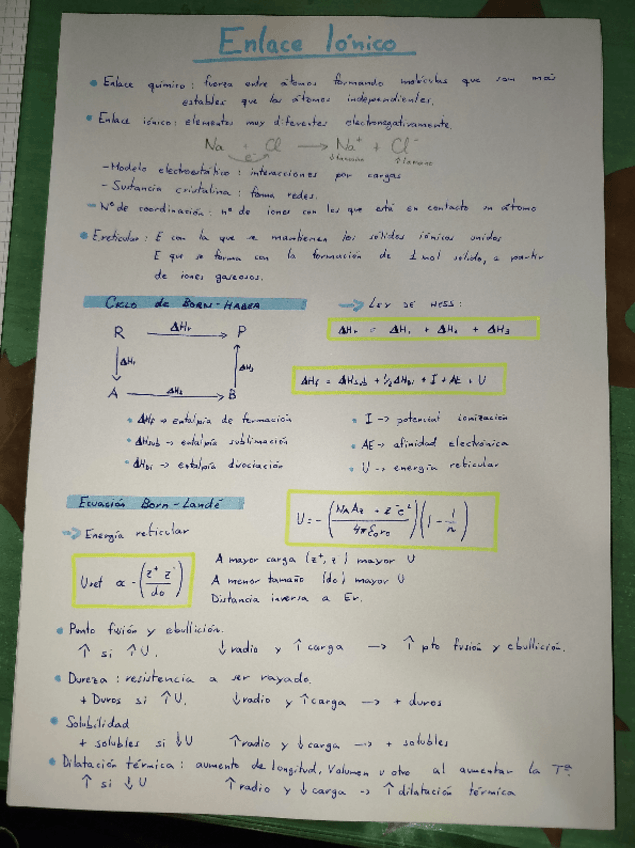 Enlace Iónico
• Enlace químico: fuerza entre átomos formando moléculas que son más
estables que los átomos independientes.
• Enlace iónico: elementos muy diferentes electronegativamente.
Na + Cl → Na⁺ + Cl⁻
e⁻ ↓tamaño ↑tamaño
- Modelo electroestático: interacciones por cargas
- Sustancia cristalina: forma redes.
- Nº de coordinación: nº de iones con los que está en contacto un átomo
• E.reticular: E con la que se mantienen los sólidos iónicos unidos
E que se forma con la formación de 1 mol sólido, a partir
de iones gaseosos.
CICLO de BORN-HABER → LEY DE HESS:
R ΔHr → P ΔHr = ΔH₁ + ΔH₂ + ΔH₃
↓ΔH₁ ↑ΔH₃
A ΔH₂ → B ΔHf = ΔHsub + ½ΔHDi + I + AE + U
• ΔHf → entalpía de formación • I → potencial ionización
• ΔHsub → entalpía sublimación • AE → afinidad electrónica
• ΔHDi → entalpía disociación • U → energía reticular
Ecuación Born-Landé U = - (NA Az⁺z⁻e² / 4πε₀r₀)(1 - 1/n)
→ Energía reticular
Uret ∝ - (z⁺ z⁻ / do) A mayor carga (z⁺, z⁻) mayor U
A menor tamaño (do) mayor U
Distancia inversa a Er.
• Punto fusión y ebullición.
↑ si ↑U. ↓radio y ↑carga → ↑ pto fusión y ebullición.
• Dureza: resistencia a ser rayado.
+ Duros si ↑U. ↓radio y ↑carga → + duros
• Solubilidad
+ solubles si ↓U ↑radio y ↓carga → + solubles
• Dilatación térmica: aumento de longitud, volumen u otro al aumentar la Tª.
↑ si ↓U ↑radio y ↓carga → ↑dilatación térmica